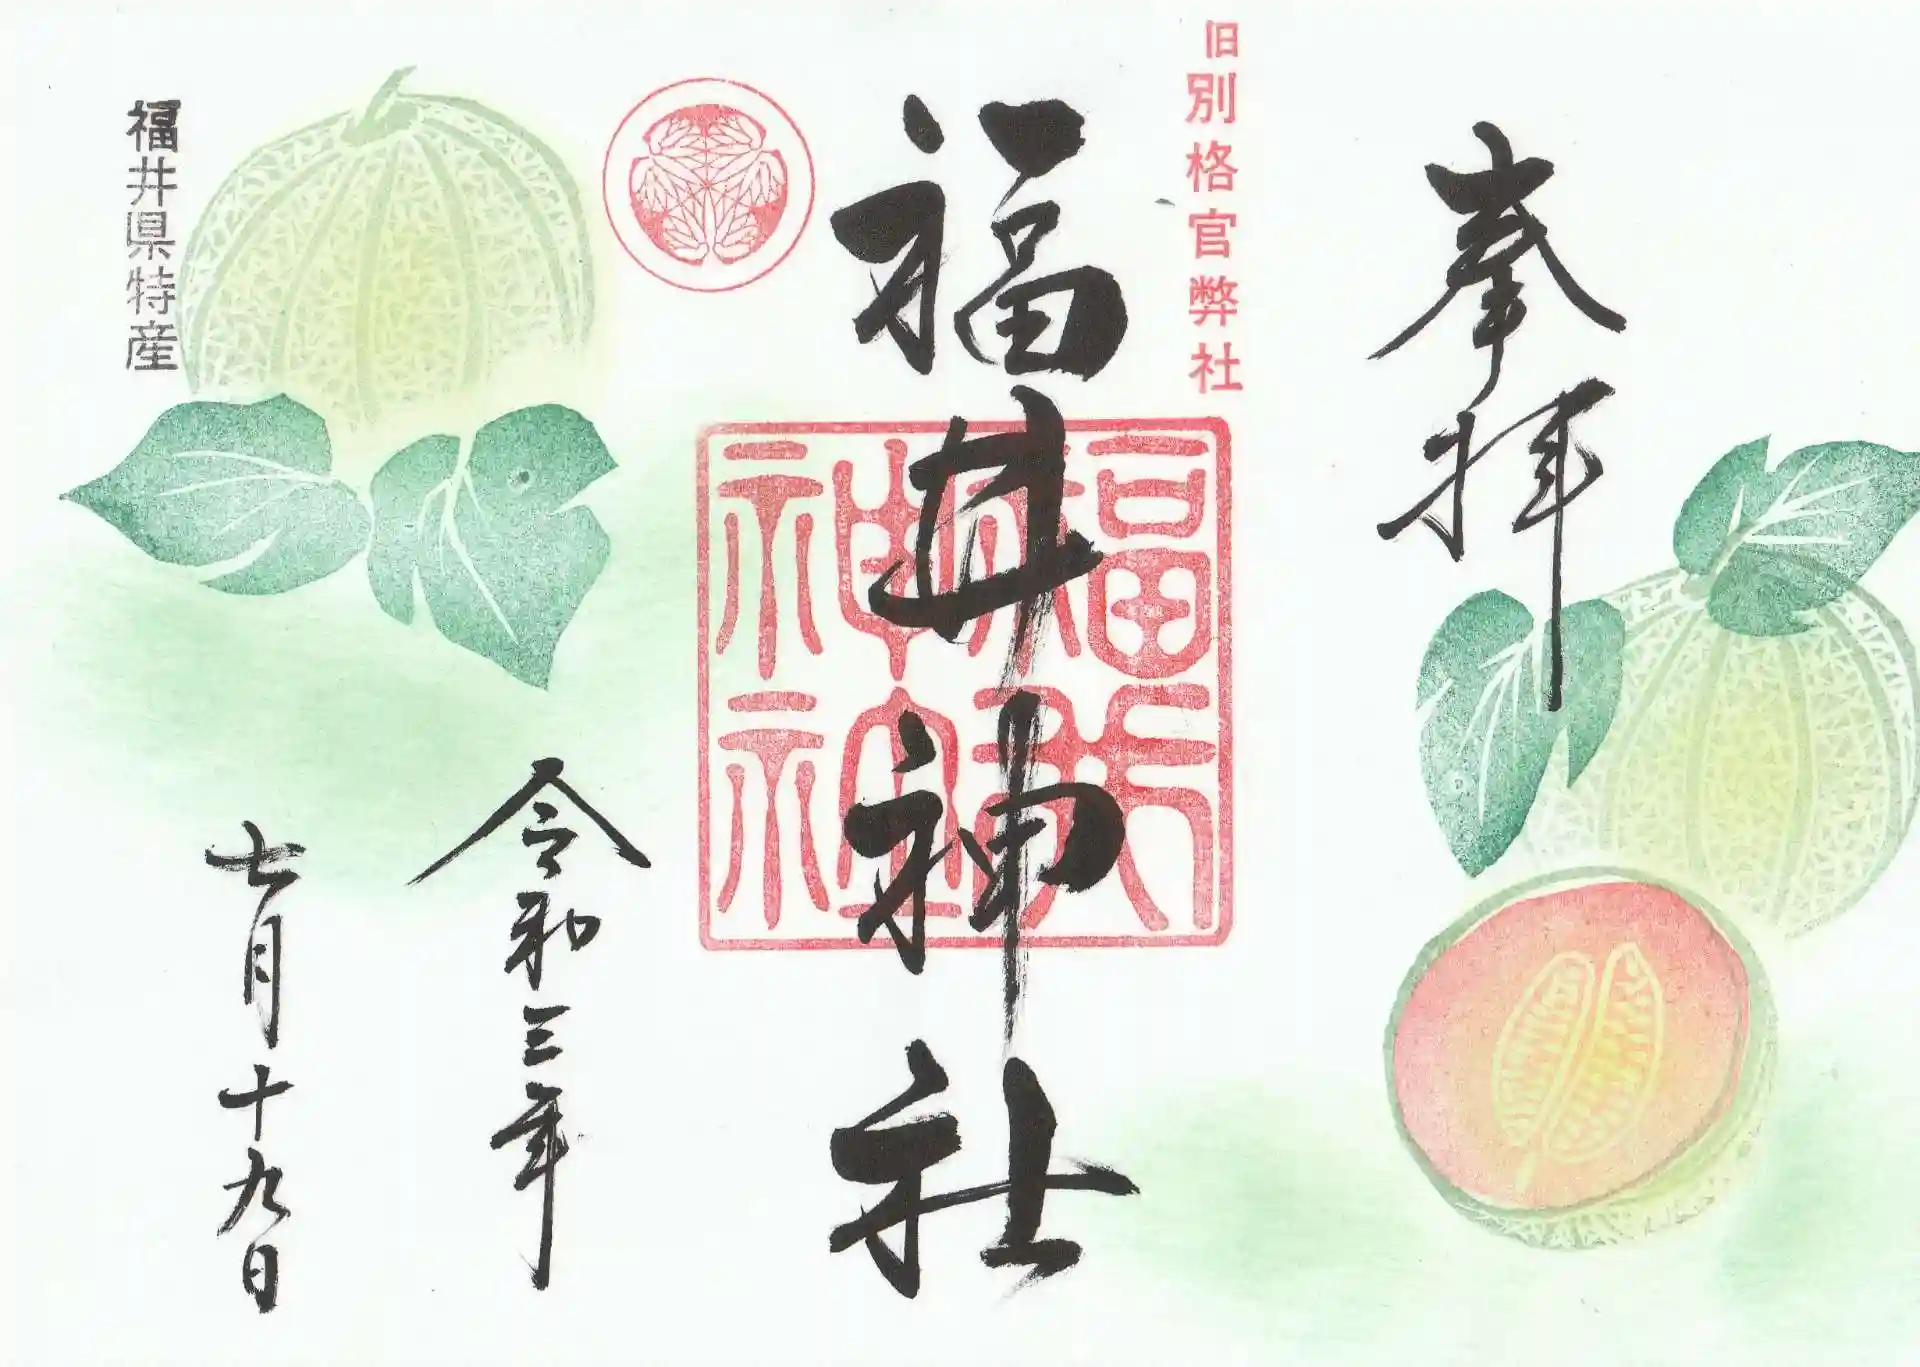 奉拝
旧別格官弊社
福井神社
令和三年
七月十九日
福井県特産